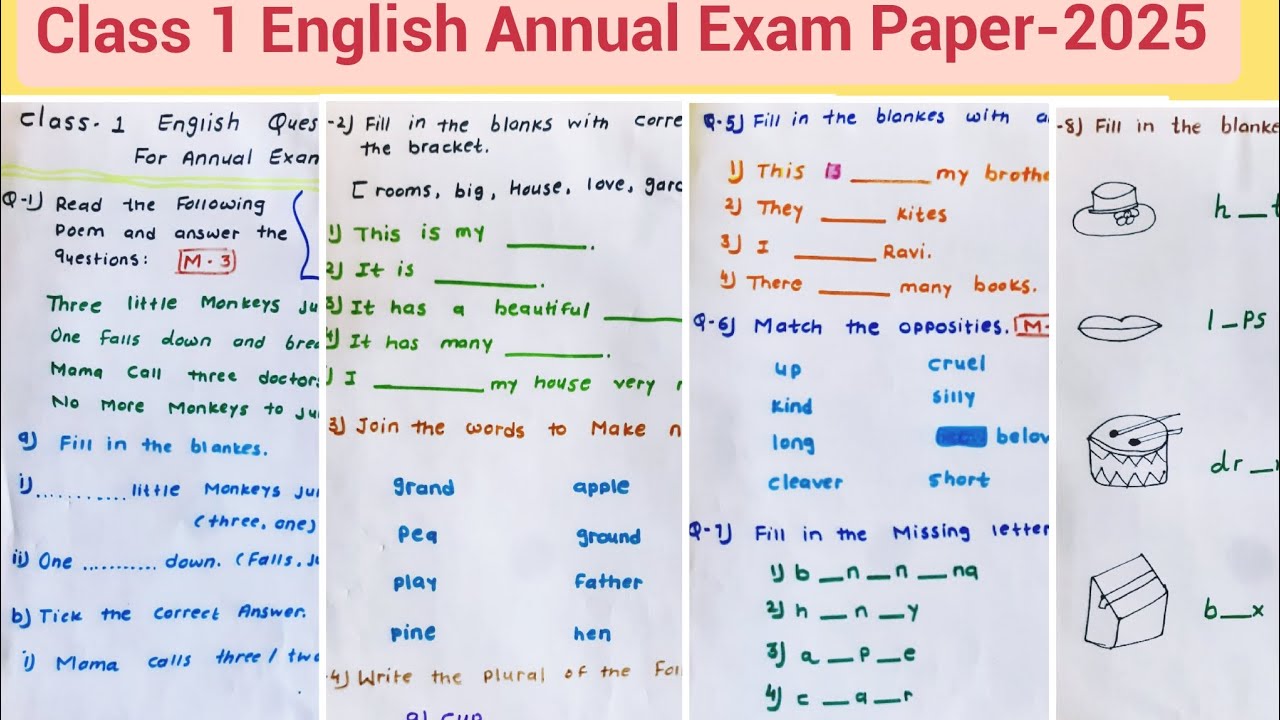 Class 1 English Annual Exam Paper-2025
Class-1 English Ques
For Annual Exan
Q-1) Read the Following
Poem and answer the
questions: M-3
Three little Monkeys ju
One falls down and brea
Mama Call three doctors
No More Monkeys to ju
a) Fill in the blankes.
i) ........... little Monkeys ju
(three, one)
ii) One ........... down. (Falls, Ju
b) Tick the correct Answer.
i) Mama calls three / two
-2) Fill in the blanks with corre
the bracket.
[ rooms, big, house, love, gard
1) This is my ______.
2) It is ______.
3) It has a beautiful ______
4) It has many ______.
) I ______ my house very
3) Join the words to Make n
grand apple
pea ground
play father
pine hen
-4) Write the plural of the Fol
a) cup
Q-5) Fill in the blankes with a
1) This ______ my brothe
2) They ______ kites
3) I ______ Ravi.
4) There ______ many books.
Q-6) Match the opposities. M-
up cruel
kind silly
long below
cleaver short
Q-7) Fill in the Missing letter
1) b _ n _ n _ na
2) h _ n _ y
3) a _ p _ e
4) c _ a _ r
-8) Fill in the blanke
h _ t
l _ ps
dr _
b _ x